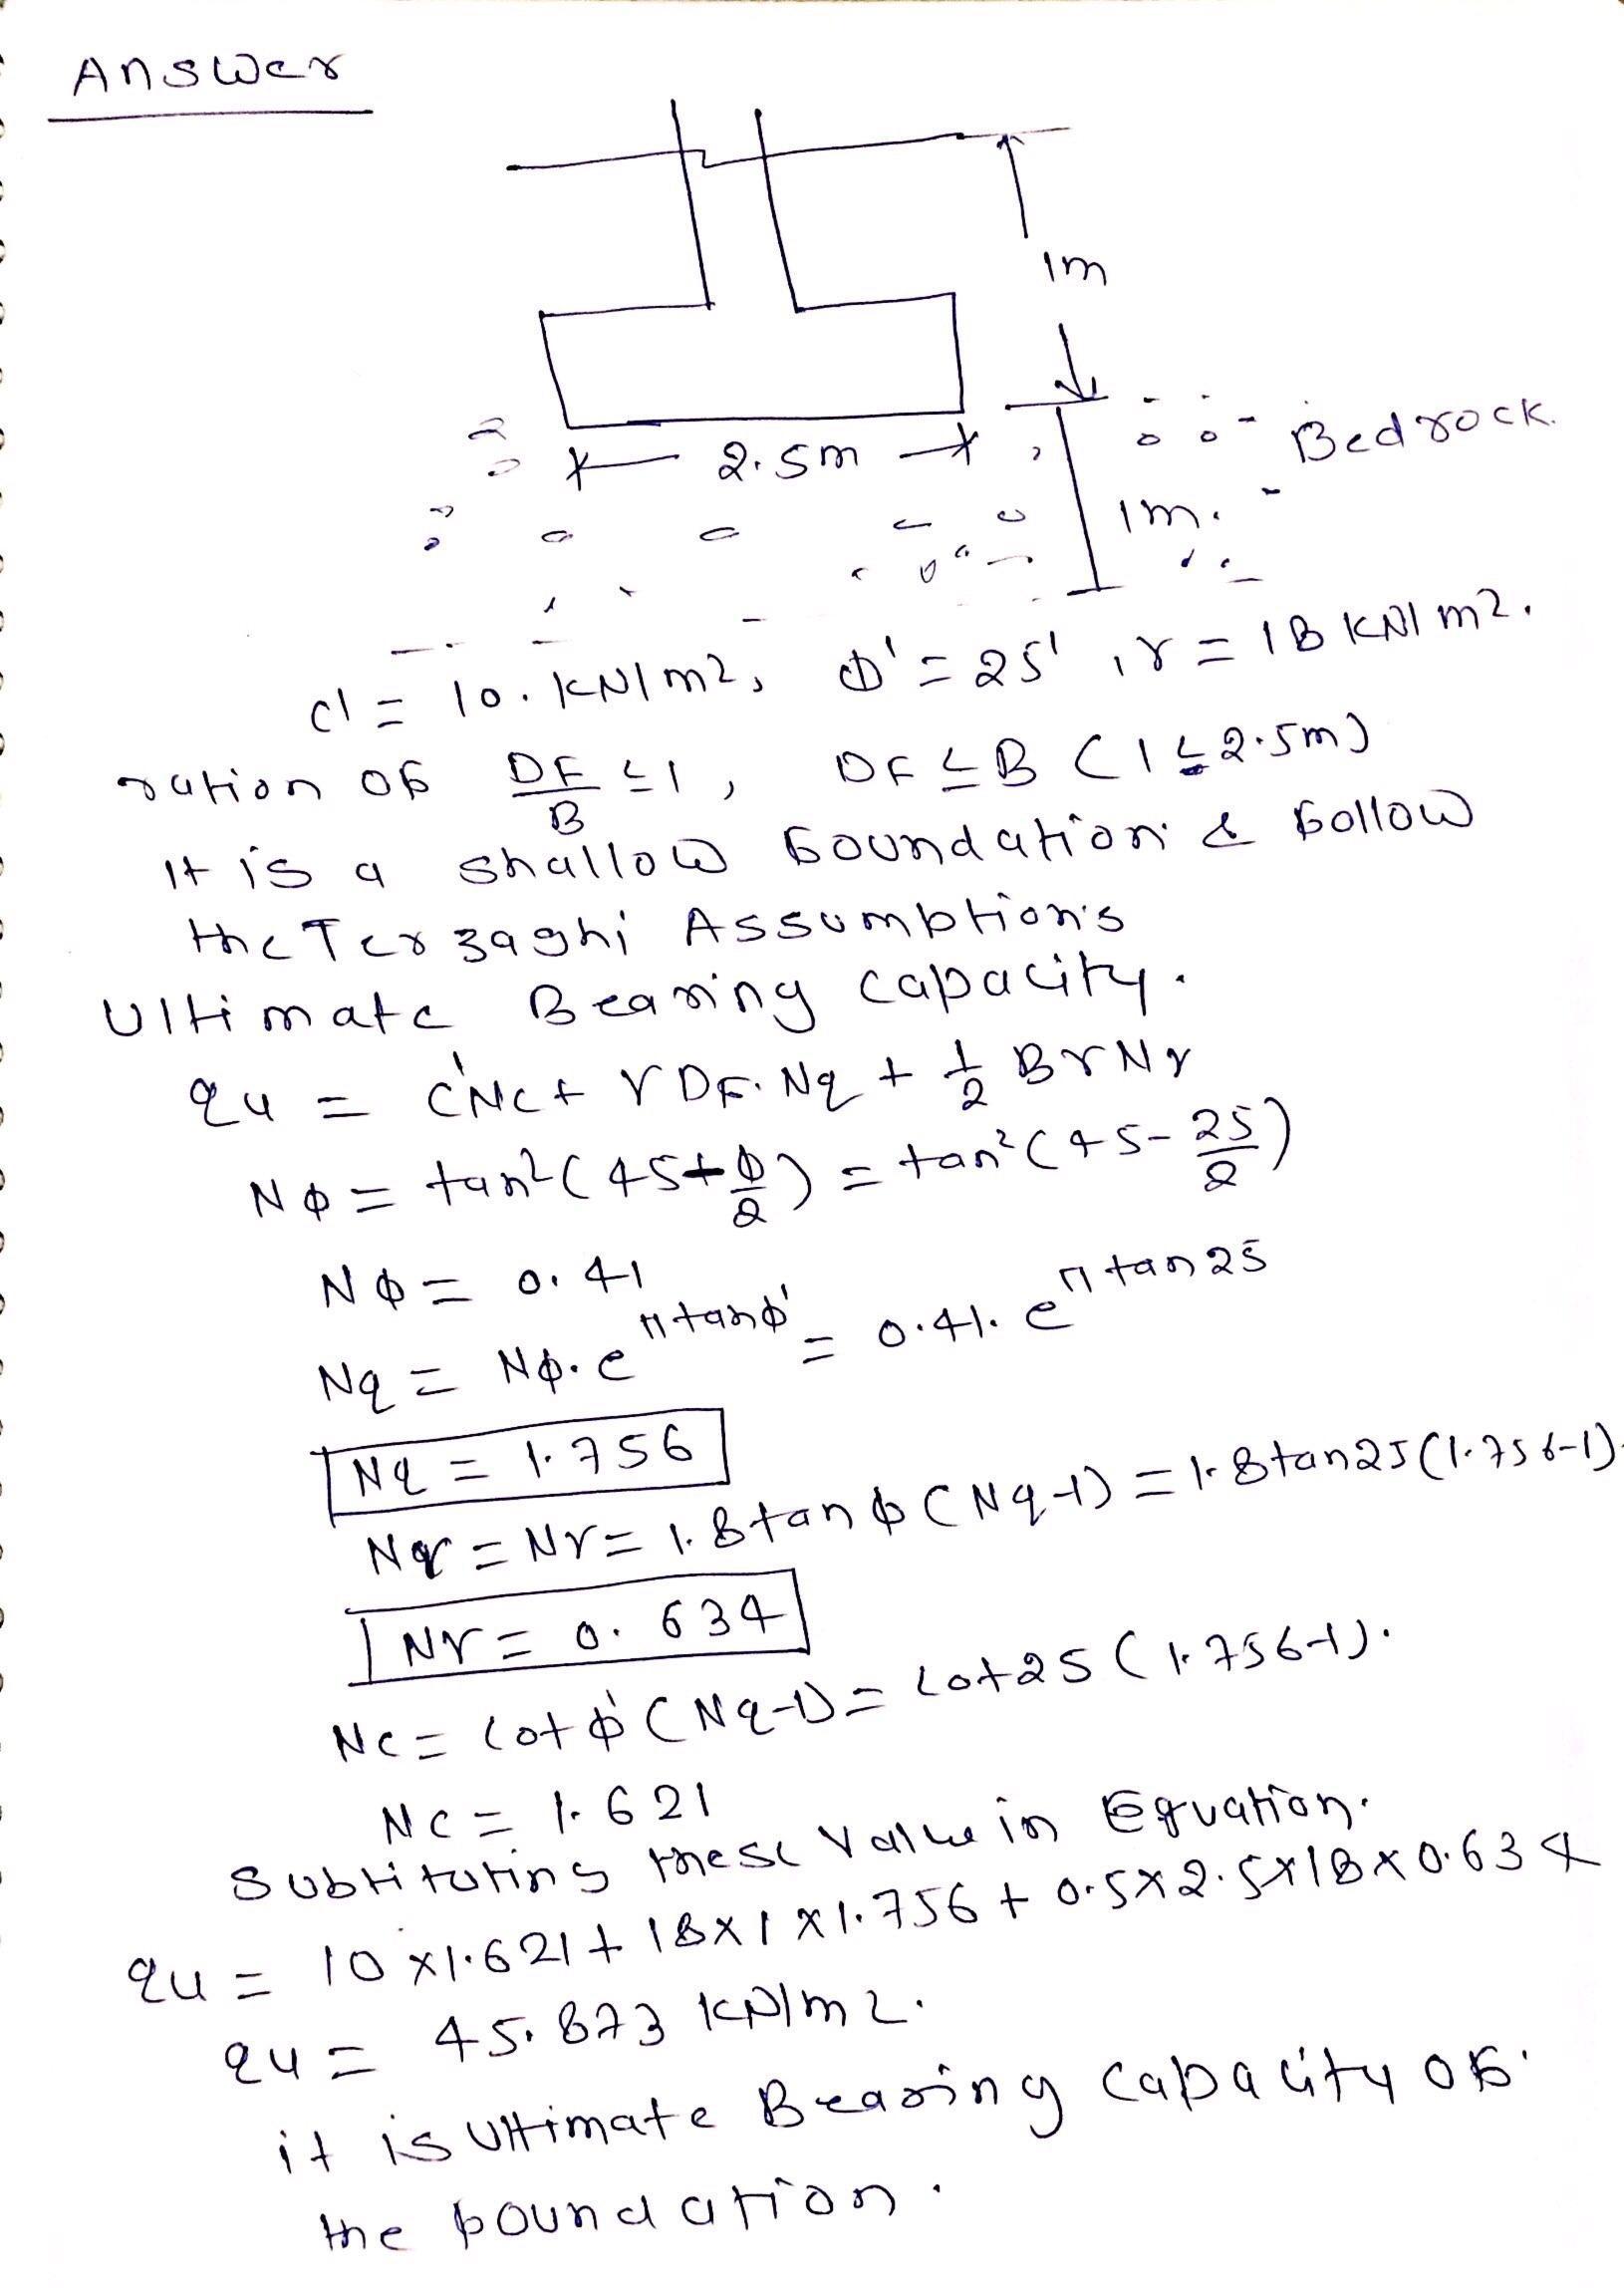 Answer
1m
Bedrock.
2.5m
1m.
c' = 10. KN/m2, Φ' = 25', γ = 18 KN/m2.
ration of DF/B ≤ 1, DF ≤ B (1 ≤ 2.5m)
It is a shallow foundation & follow
the Terzaghi Assumption's
Ultimate Bearing capacity.
qu = c'Nc + γ DF. Nq + 1/2 BγNγ
NΦ = tan²(45+Φ/2) = tan²(45-25/2)
NΦ = 0.41
Nq = NΦ.e^πtanΦ' = 0.41. e^πtan25
Nq = 1.756
Nγ = Nγ = 1.8tanΦ(Nq-1) = 1.8tan25(1.756-1).
Nγ = 0.634
Nc = cotΦ'(Nq-1) = cot25(1.756-1).
Nc = 1.621
Subtituting these value in Equation.
qu = 10×1.621 + 18×1×1.756 + 0.5×2.5×18×0.634
qu = 45.873 KN/m2.
it is Ultimate Bearing capacity of
the foundation.